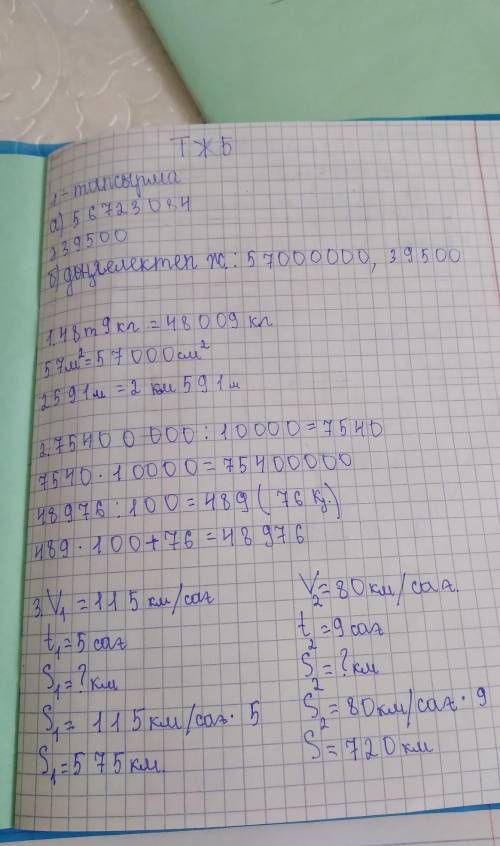 ТЖБ
1-тапсырма
а) 56723084
239500
б) дөңгелектеп ж.: 57000000, 39500
1.48т9кг=48009кг
57м²=57000см²
2591м=2 км 591м
2.75400000:10000=7540
7540·10000=75400000
48976:100=489(76қ.)
489·100+76=48976
3.V₁=115км/сағ V₂=80км/сағ.
t₁=5 сағ t₂=9 сағ
S₁=?км S₂=?км
S₁=115км/сағ·5 S₂=80км/сағ·9
S₁=575км. S₂=720км